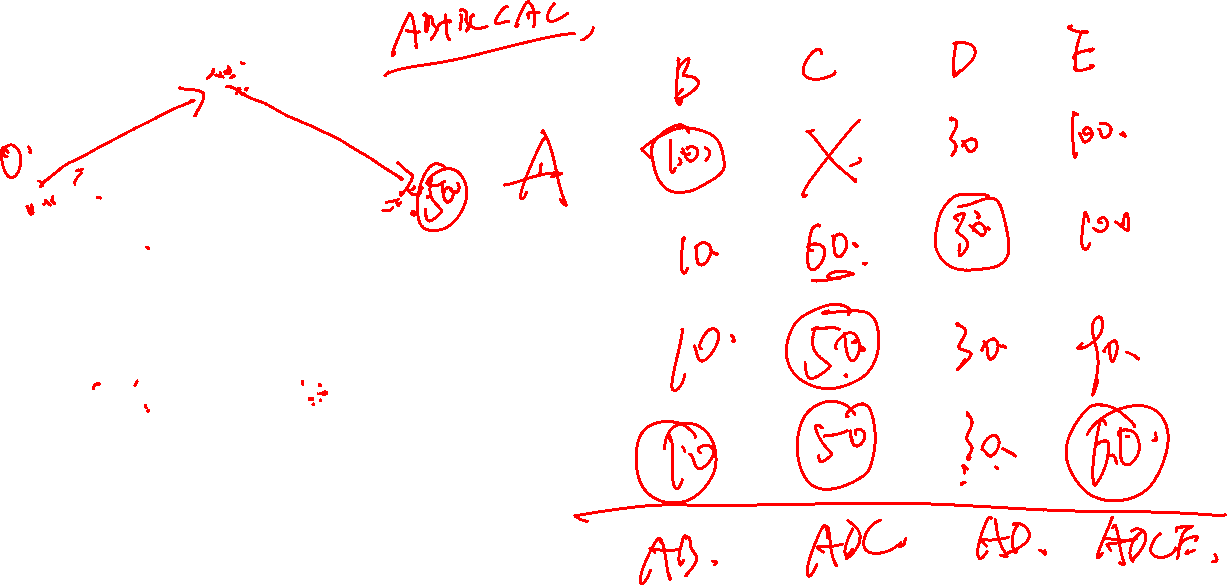 AB+BC<AC
B C D E
0
50
A 10 X 30 100
10 60 30 100
10 50 30 90
10 50 30 60
AB. ADC AD. ADCE.